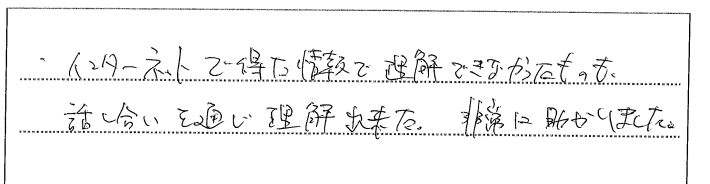 ・インターネットで得た情報で理解できなかったものも、
話し合いを通じ理解出来た。非常に助かりました。